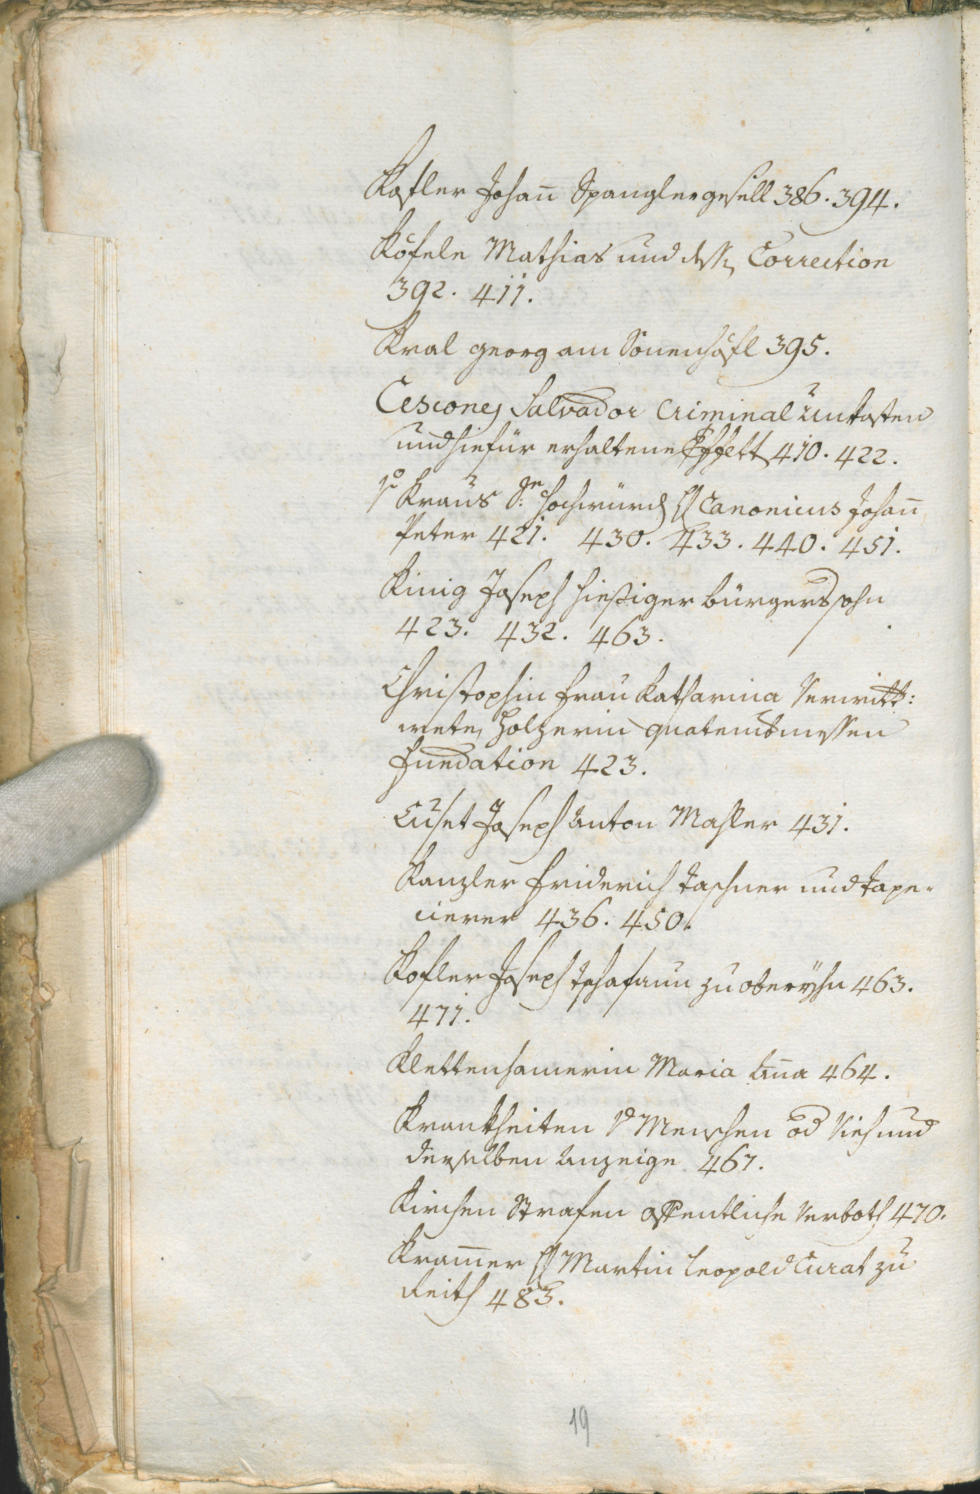 Kofler Johan̄ Spanglergesell 386. 394.
Köfeln Mathias und dessen Correction
392. 411.
Kral georg am Sonenhöfl 395.
Cescones Salvador Criminal Unkosten
und hiefür erhaltene Effett 410. 422.
Kraus Se Hochwürd H Canonicus Johan̄
Peter 421. 430. 433. 440. 451.
Kinig Joseph hießiger bürgerssohn
423. 432. 463.
Christophin frau Katharina Verwitt:
wete Holzerin quatembmessen
fundation 423.
Cuset Joseph Anton Mahler 431.
Kanzler friderich taschner und tape-
cierer 436. 450.
Kofler Joseph zu 463.
471.
Klettenhamerin Maria An̄a 464.
Krankheiten Menschen od Vieh und
derselben Anzeige 467.
Kirchen Strafen offentliche Verboth 470.
Kram̄er H Martin Leopold Curat zu
Reith 483.
19